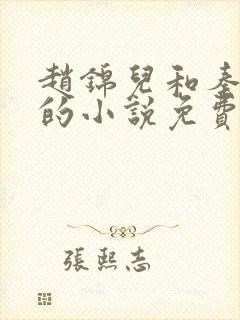 趙錦兒和秦
的小說免費
張熙志